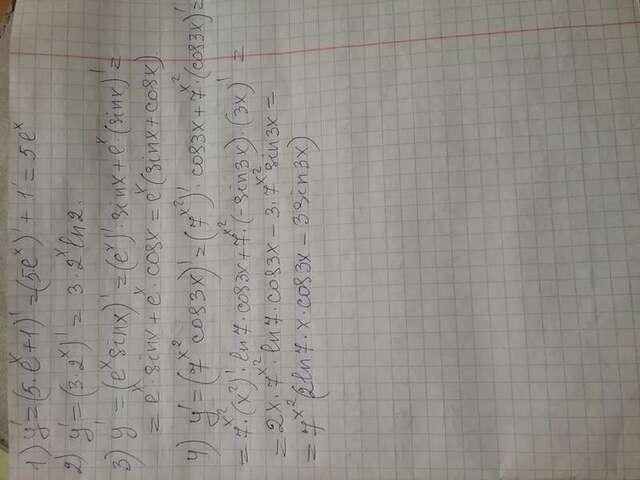 1) y' = (5·eˣ+1)' = (5eˣ)' + 1' = 5eˣ
2) y' = (3·2ˣ)' = 3·2ˣln2.
3) y' = (eˣsinx)' = (eˣ)'·sinx + eˣ·(sinx)' =
= eˣ·sinx + eˣ·cosx = eˣ(sinx + cosx)
4) y' = (7^x² cos3x)' = (7^x²)'·cos3x + 7^x²·(cos3x)' =
= 7^x²·(x²)'·ln7·cos3x + 7^x²·(-sin3x)·(3x)' =
= 2x·7^x²·ln7·cos3x - 3·7^x² sin3x =
= 7^x²(2ln7·x·cos3x - 3sin3x)